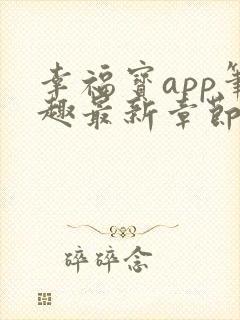 幸福宝app笔
趣最新章节
碎碎念